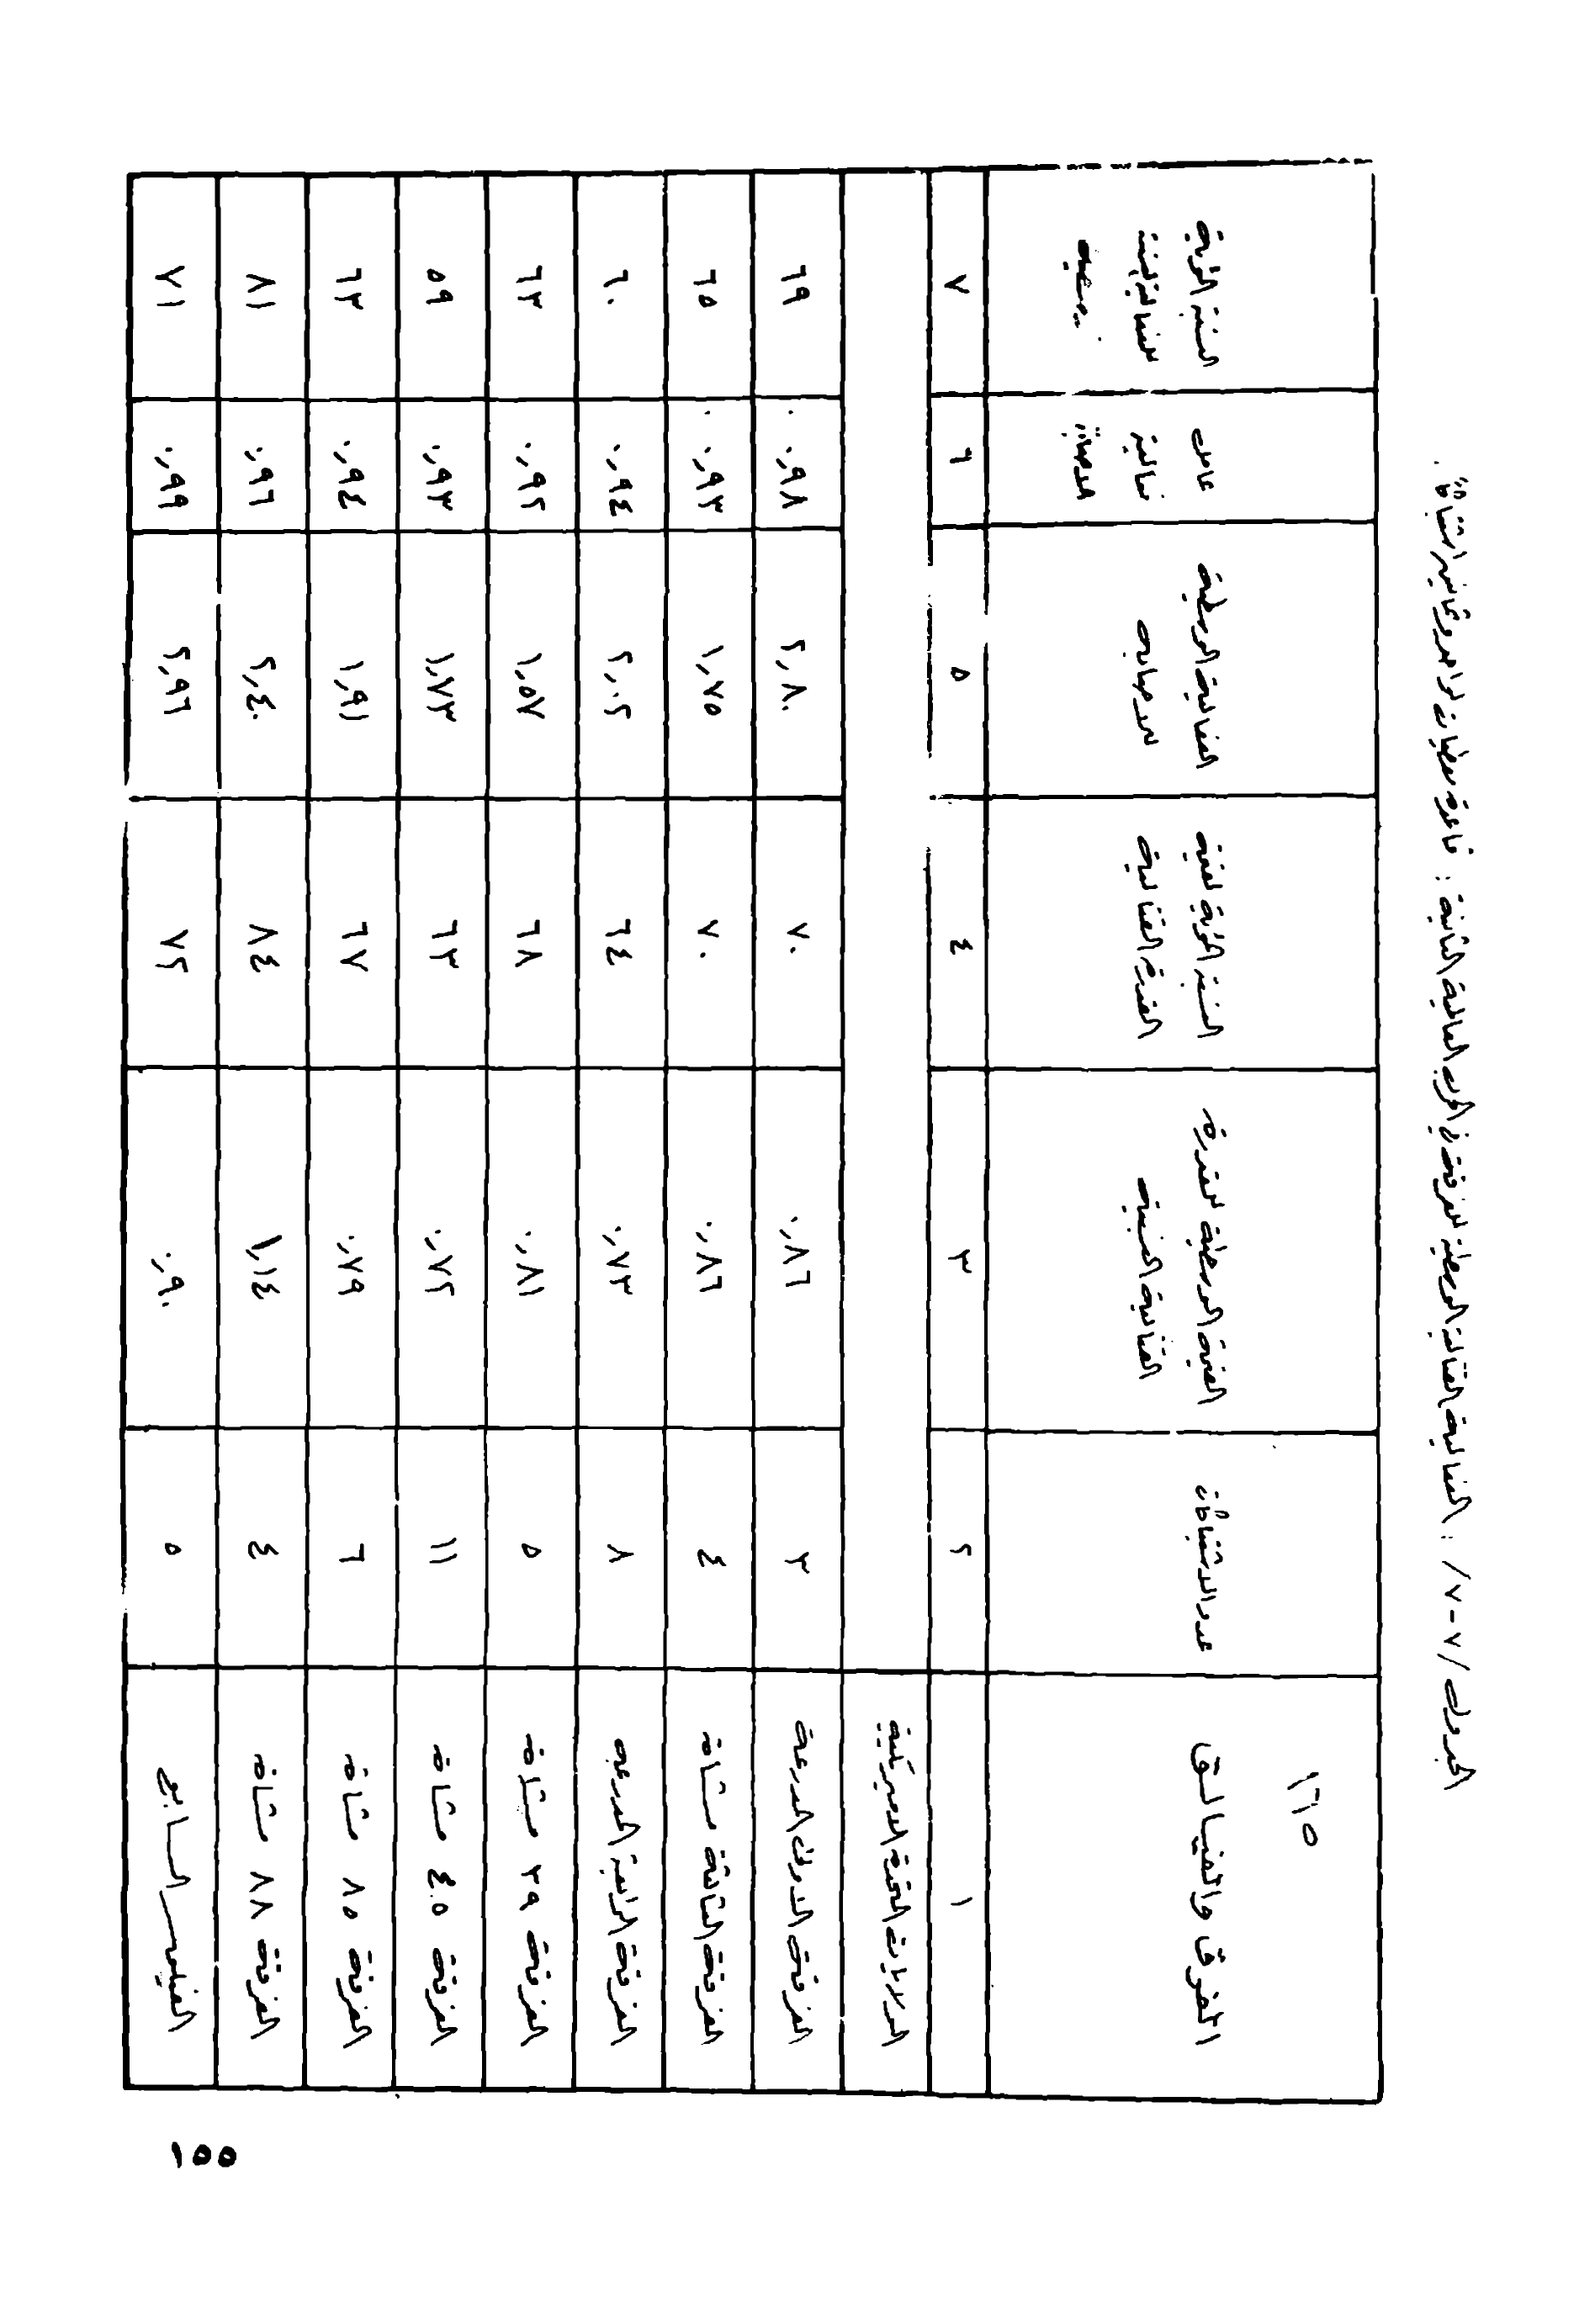 الجدول /٧-٧/: الفعالية القتالية الوسطية للفرقة في الحرب العالمية الثانية: قاعدة معطيات لواحد وثمانين اشتباكاً.
١٦١٥
الفرق والفيالق
عدد الاشتباكات
القيمة الوسطية للقدرة القتالية النسبية
النسبة المئوية لقيمة القدرة القتالية
الفعالية الوسطية للاصابات
عامل فعالية الاصابات
النسبة المئوية
١ ٢ ٣ ٤ ٥ ٦ ٧
الولايات المتحدة الاميركية
الفرقة الاولى المدرعة ٣ ٠,٨٦ ٧٠ ٢,٨٠ ٠,٩٨ ٦٩
الفرقة الثالثة مشاة ٤ ٠,٨٦ ٧٠ ١,٧٥ ٠,٩٣ ٦٥
الفرقة الرابعة المدرعة ٨ ٠,٧٣ ٦٤ ٢,٠٢ ٠,٩٤ ٦٠
الفرقة ٣٩ مشاة ٥ ٠,٨١ ٦٨ ١,٥٧ ٠,٩٢ ٦٣
الفرقة ٤٥ مشاة ١١ ٠,٧٢ ٦٣ ١,٧٣ ٠,٩٣ ٥٩
الفرقة ٨٥ مشاة ٦ ٠,٧٩ ٦٧ ١,٩١ ٠,٩٤ ٦٣
الفرقة ٨٨ مشاة ٤ ١,١٤ ٨٤ ٢,٤٠ ٠,٩٦ ٨١
الفيلق السابع ٥ ٠,٩٠ ٧٢ ٢,٩٦ ٠,٩٩ ٧١
١٥٥